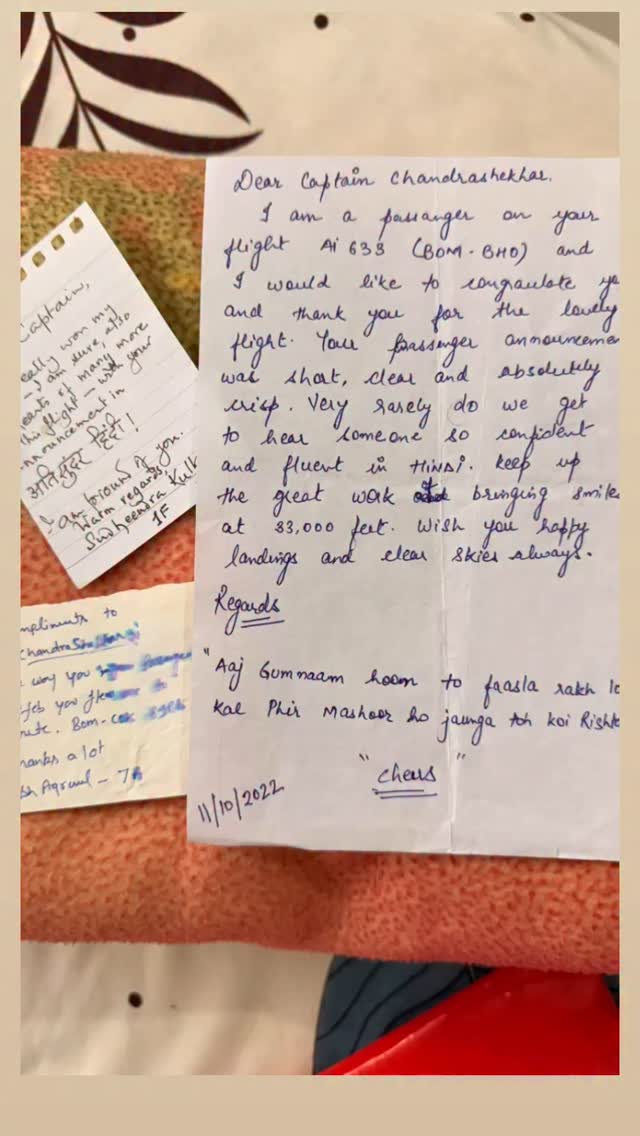 Dear Captain Chandrashekhar.
I am a passanger on your
flight AI 633 (BOM-BHO) and
I would like to congraulate yo
and thank you for the lovely
flight. Your passenger announcemen
was short, clear and absolutely
crisp. Very rarely do we get
to hear someone so confident
and fluent in HINDI. Keep up
the great work of bringing smiles
at 33,000 feet. Wish you happy
landings and clear skies always.
Regards
"Aaj Gumnaam hoon to faasla rakh lo
Kal Phir Mashoor ho jaunga toh koi Rishta
"Cheers"
11/10/2022
Captain,
eally won my
- I am sure, also
earts of many more
this flight - with your
nnouncement in
हिंदी!
I am proud of you.
Warm regards,
Sudheendra Kulk
1F
mpliments to
Chandrashekhar
way you
feb you
ute. Bom-
hanks a lot
sh Agrawal - 7